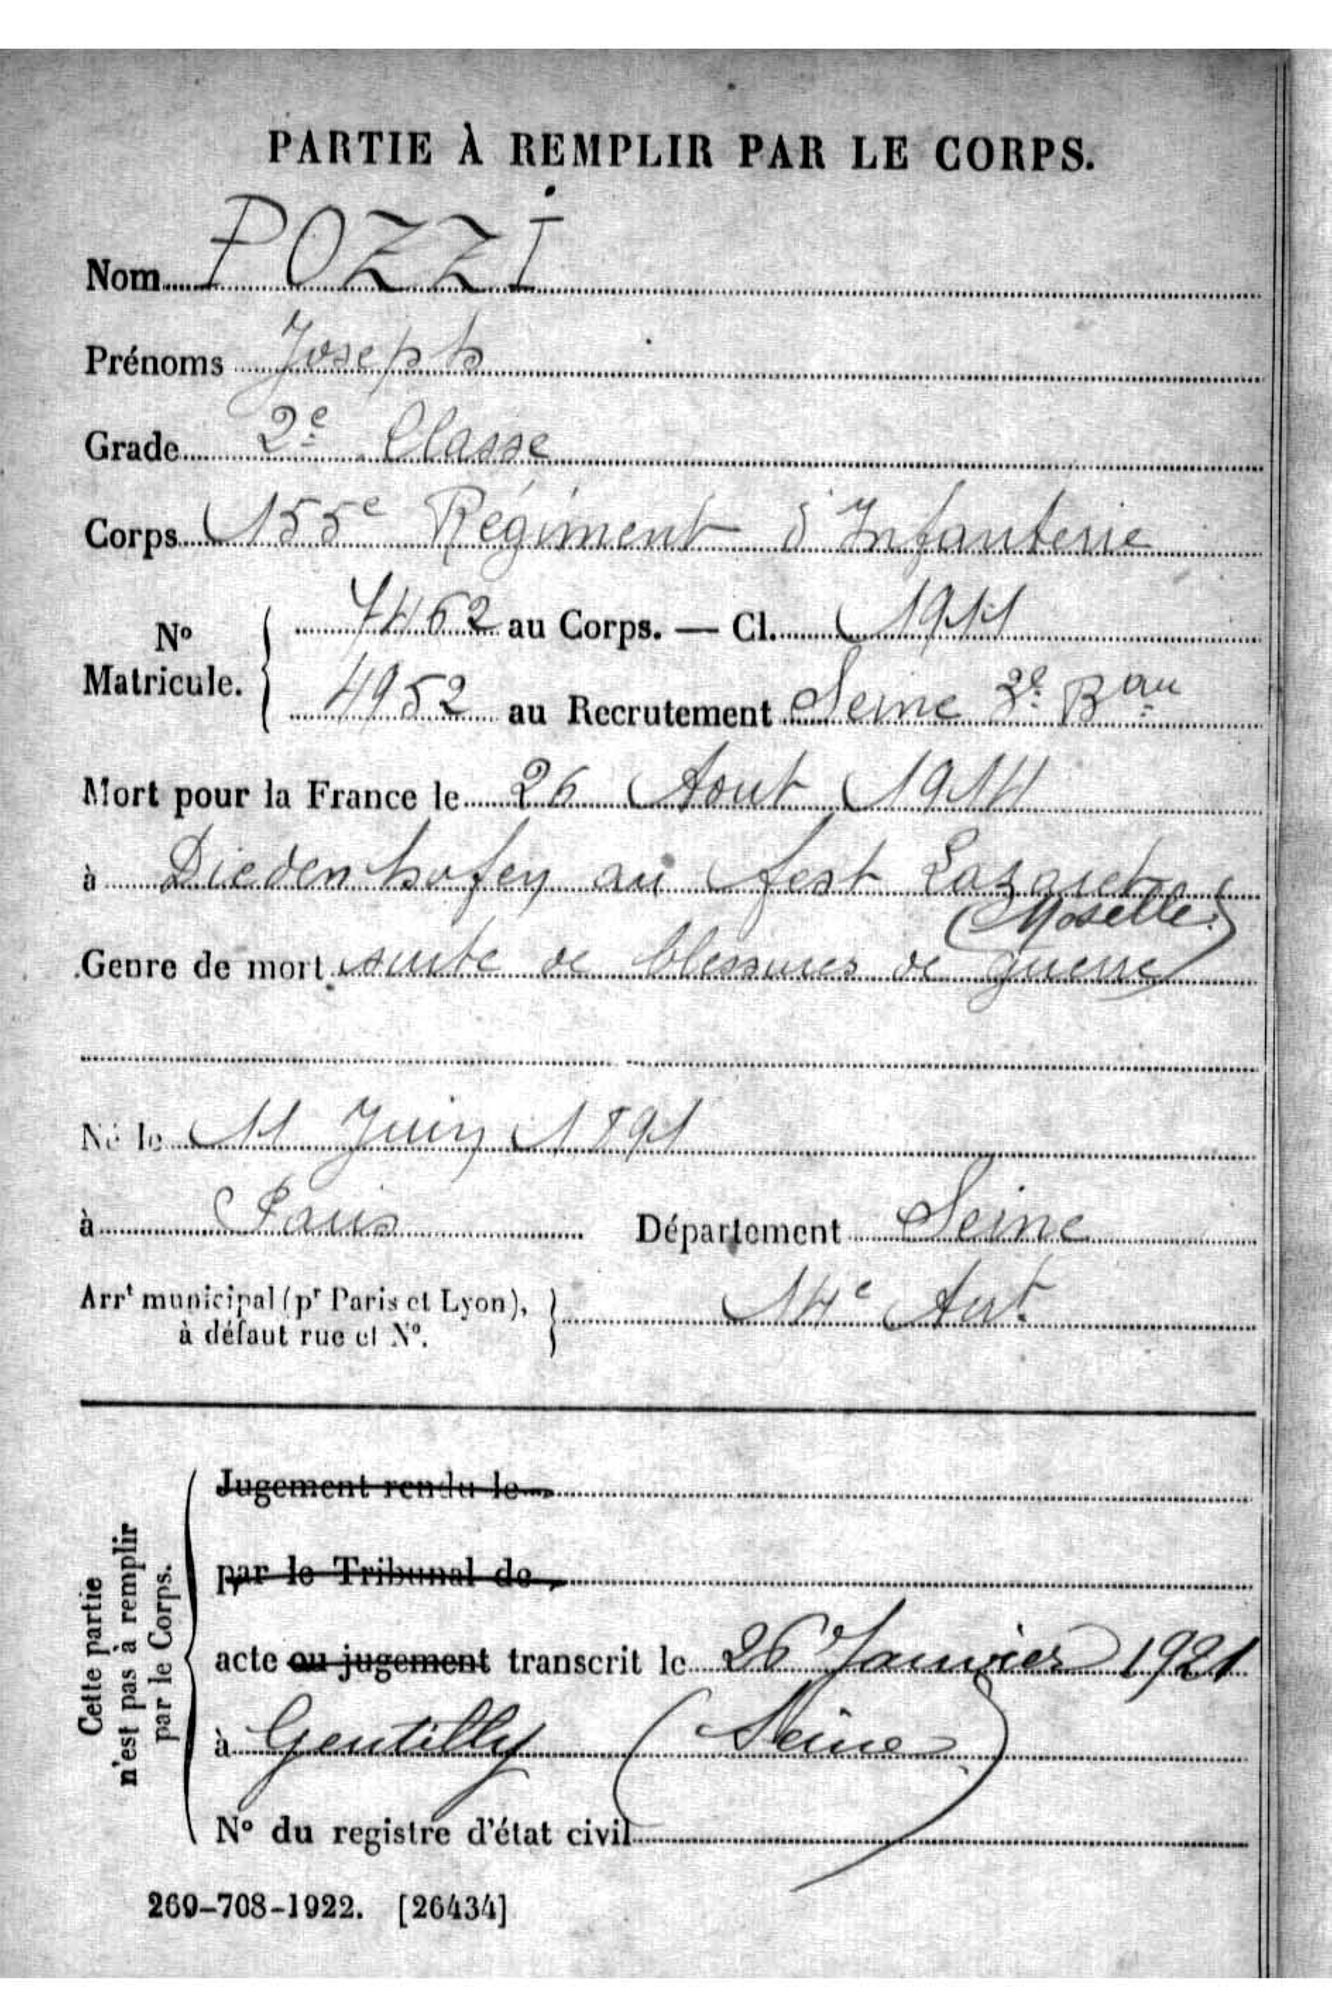 PARTIE À REMPLIR PAR LE CORPS.
Nom POZZI
Prénoms Joseph
Grade 2e Classe
Corps 155e Régiment d'Infanterie
No Matricule. { 7462 au Corps. — Cl. 1911
4952 au Recrutement Seine 3e Bau
Mort pour la France le 26 Aout 1914
à Diedenhofen au fest Lazaret
(Moselle)
Genre de mort suite de blessures de guerre
Né le 11 Juin 1891
à Paris Département Seine
Arrt municipal (pr Paris et Lyon), à défaut rue et No. } 14e Arrt.
Cette partie n'est pas à remplir par le Corps.
Jugement rendu le
par le Tribunal de
acte ou jugement transcrit le 26 Janvier 1921
à Gentilly (Seine)
No du registre d'état civil
269-708-1922. [26434]